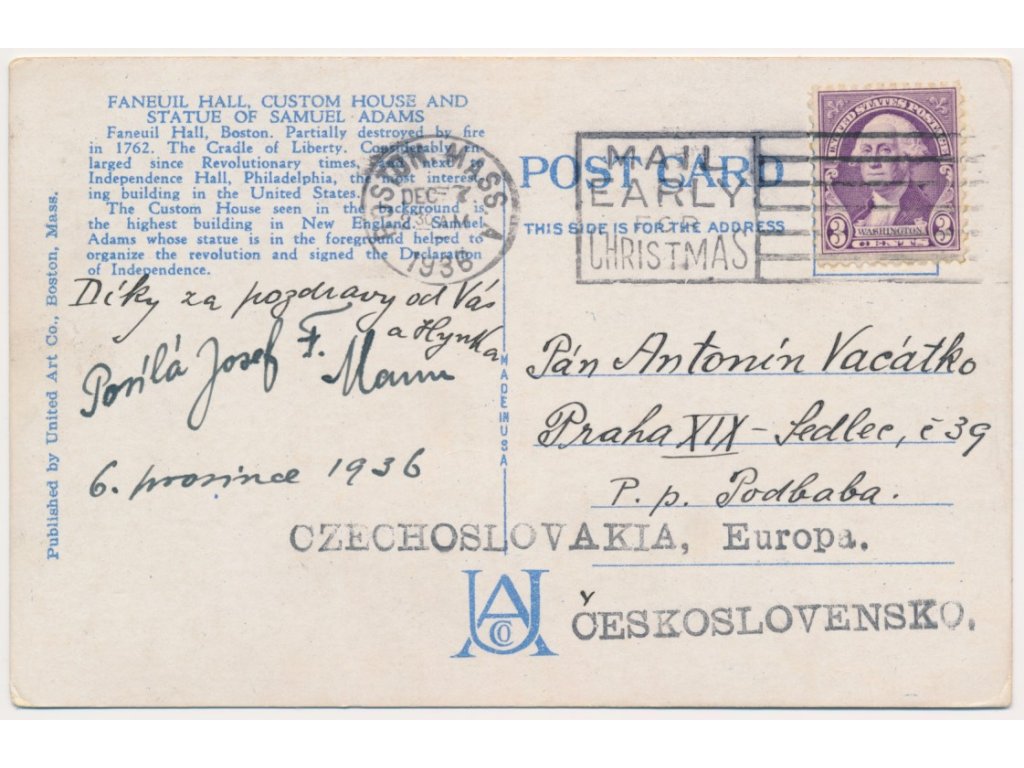 FANEUIL HALL, CUSTOM HOUSE AND
STATUE OF SAMUEL ADAMS
Faneuil Hall, Boston. Partially destroyed by fire
in 1762. The Cradle of Liberty. Considerably en-
larged since Revolutionary times, and next to
Independence Hall, Philadelphia, the most interest-
ing building in the United States.
The Custom House seen in the background is
the highest building in New England. Samuel
Adams whose statue is in the foreground helped to
organize the revolution and signed the Declaration
of Independence.
Published by United Art Co., Boston, Mass.
BOSTON MASS. A
DEC 7
30 AM
1936
MAIL
EARLY
FOR
CHRISTMAS
POST CARD
THIS SIDE IS FOR THE ADDRESS
UNITED STATES POSTAGE
3 WASHINGTON 3
CENTS
Díky za pozdravy od Vás
a Hynka
Posílá Josef F.
6. prosince 1936
MADE IN USA
Pán Antonín Vacátko
Praha XIX - Sedlec, č 39
P. p. Podbaba.
CZECHOSLOVAKIA, Europa.
ČESKOSLOVENSKO.
UACO